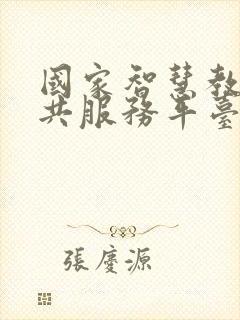 國家智慧教
共服務平臺
張慶源